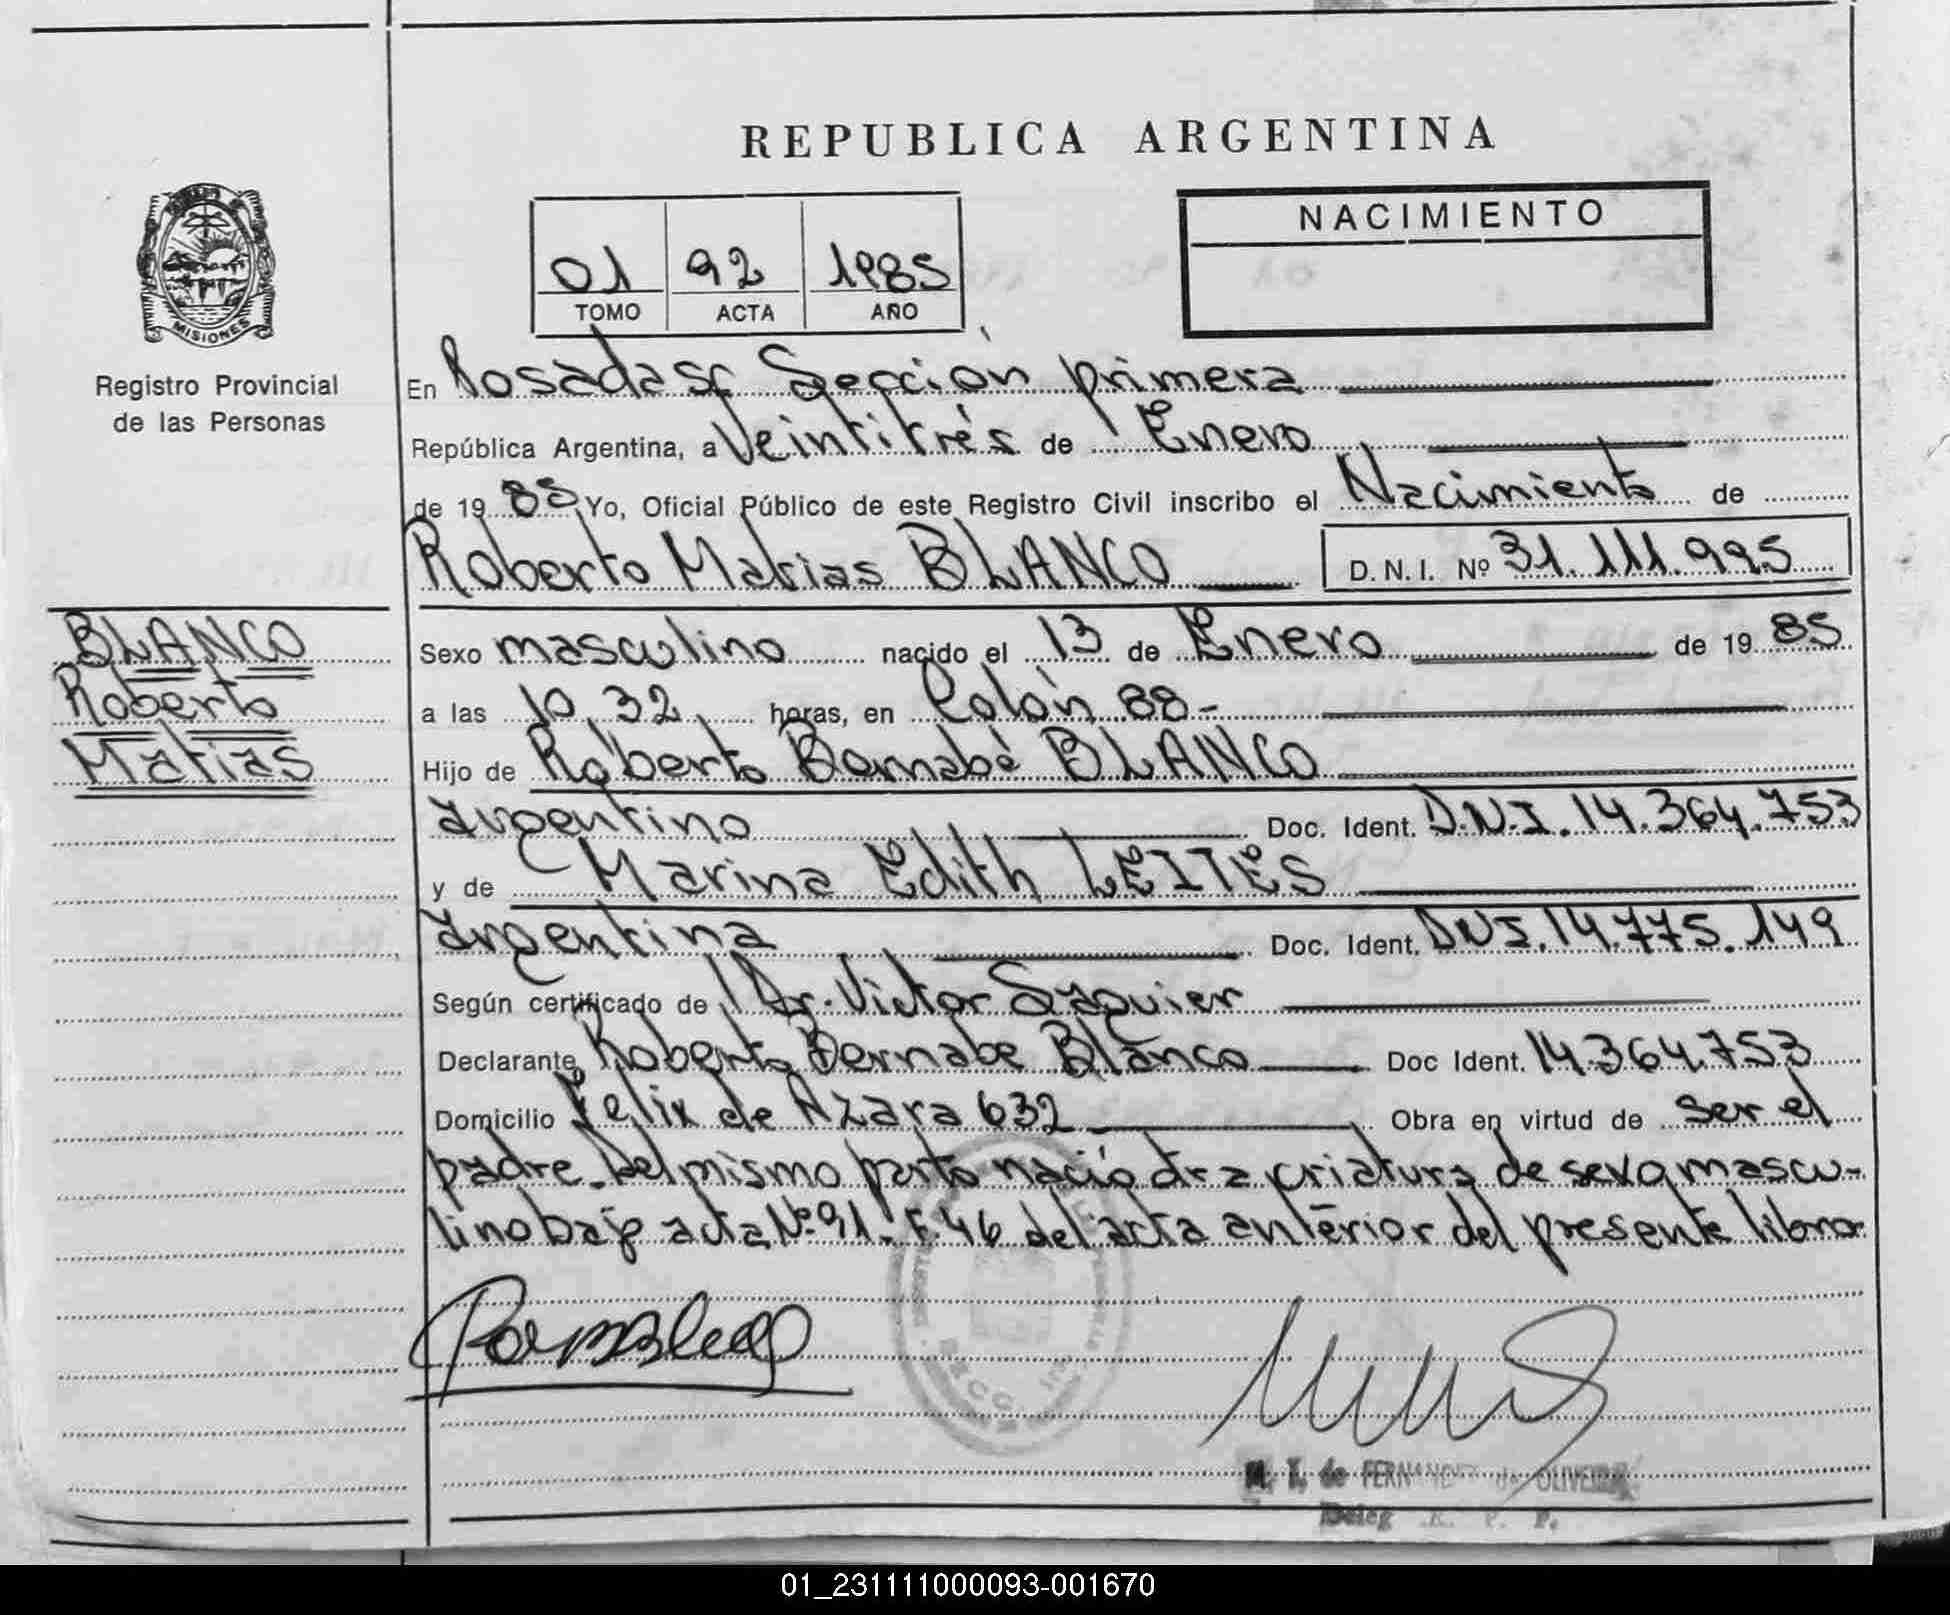 REPUBLICA ARGENTINA
01 92 1985
TOMO ACTA AÑO
NACIMIENTO
MISIONES
Registro Provincial
de las Personas
En Posadas Sección primera
República Argentina, a Veintitrés de Enero
de 19 85 Yo, Oficial Público de este Registro Civil inscribo el Nacimiento de
Roberto Matias BLANCO D.N.I. Nº 31.111.995
BLANCO
Roberto
Matias
Sexo masculino nacido el 13 de Enero de 19 85
a las 10,32 horas, en Colón 88-
Hijo de Roberto Bernabé BLANCO
argentino Doc. Ident. D.N.I. 14.364.753
y de Marina Edith LEITES
argentina Doc. Ident. DNI. 14.775.149
Según certificado de Dr. Victor
Declarante Roberto Bernabe Blanco Doc Ident. 14.364.753
Domicilio Felix de Azara 632 Obra en virtud de ser el
padre. Del mismo parto nació otra criatura de sexo mascu-
lino bajo acta Nº 91. F. 46 del acta anterior del presente libro
M. I. de FERNANDEZ de OLIVEIRA
Deleg R. P. P.
01_231111000093-001670